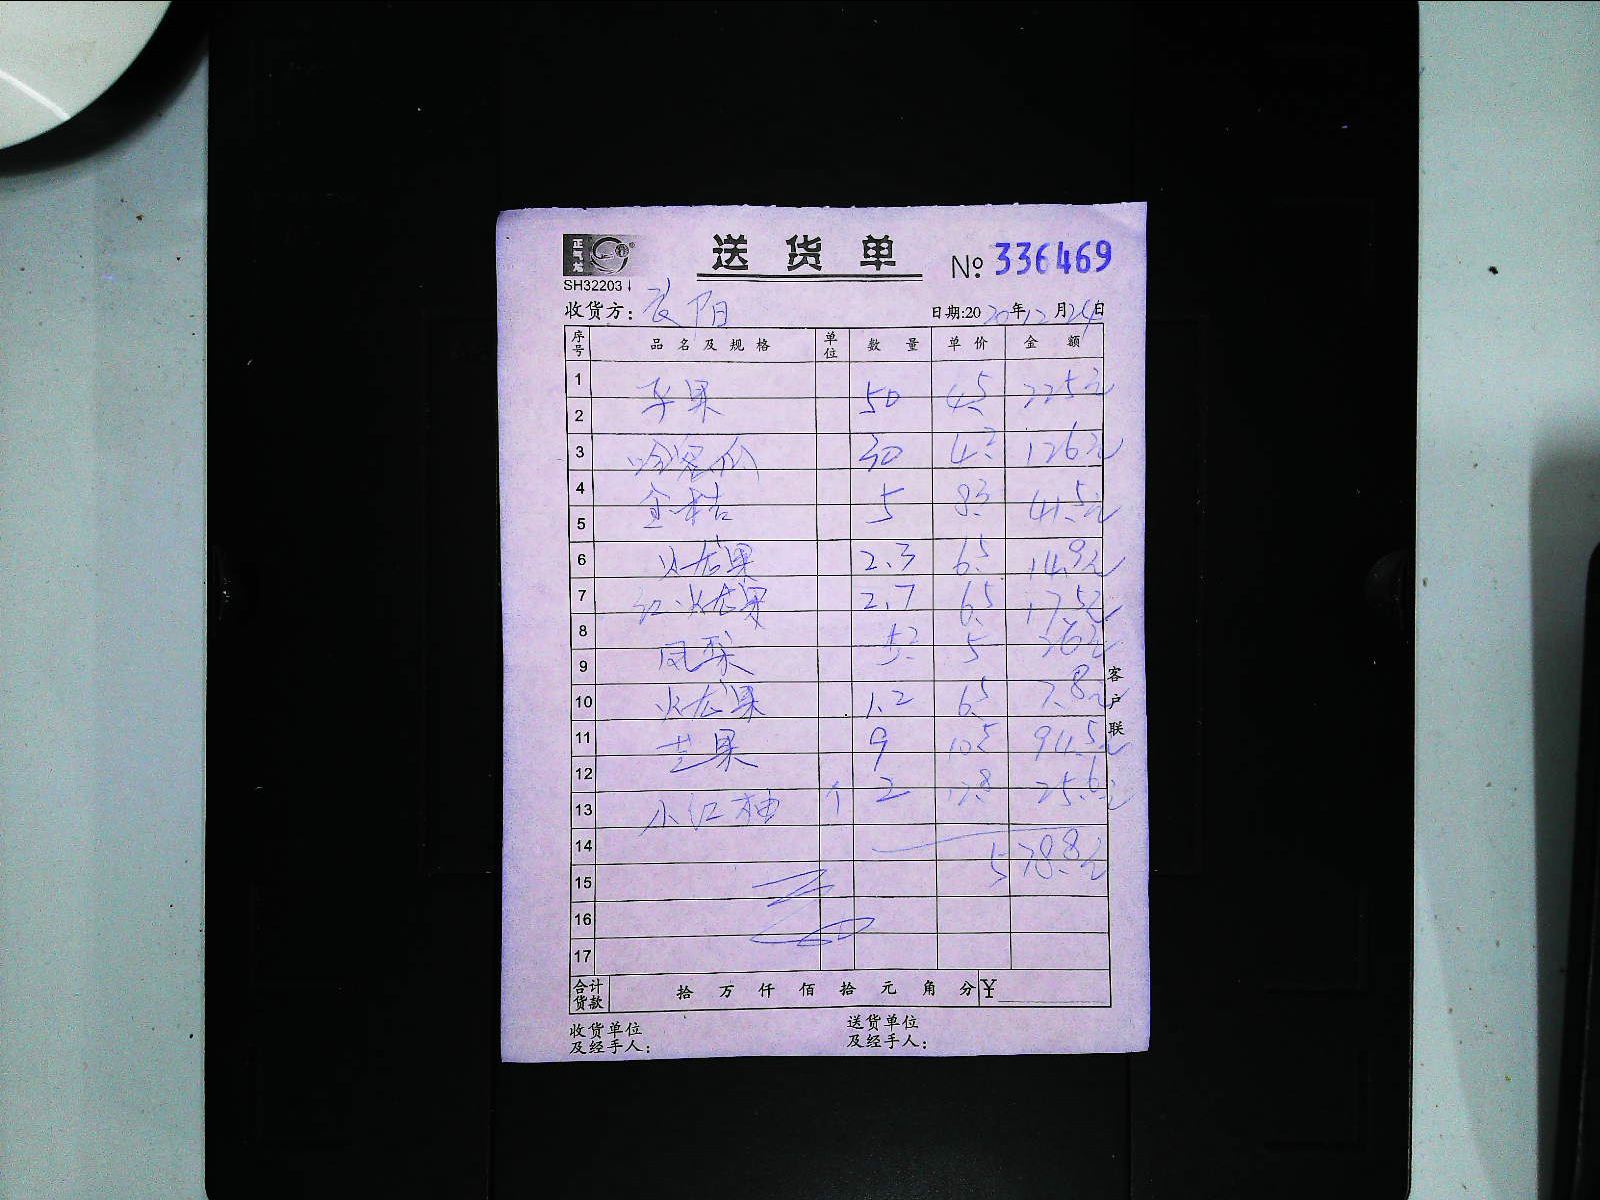 正气龙
送货单
№ 336469
SH32203
收货方： 阳 日期:2020年12月24日
序号 品名及规格 单位 数量 单价 金额
1 苹果 50 4.5 225元
2
3 哈密瓜 30 4.2 126元
4 金桔 5 8.3 41.5元
5
6 火龙果 2.3 6.5 14.9元
7 红火龙果 2.7 6.5 17.5元
8 凤梨 5.2 5 26元
9
10 火龙果 1.2 6.5 7.8元
11 芒果 9 10.5 94.5元
12
13 小红柚 个 2 12.8 25.6元
14 578.8元
15
16
17
客户联
合计货款 拾 万 仟 佰 拾 元 角 分 ¥
收货单位及经手人： 送货单位及经手人：